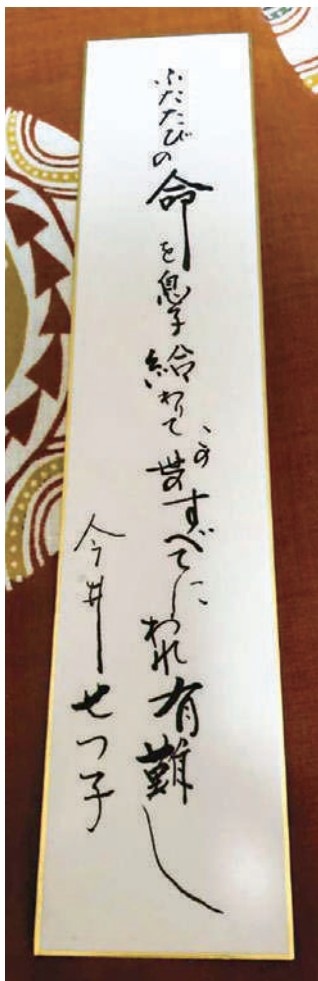 ふたたびの命を息子給わりてこの世のすべてにわれ有難し
今井せつ子